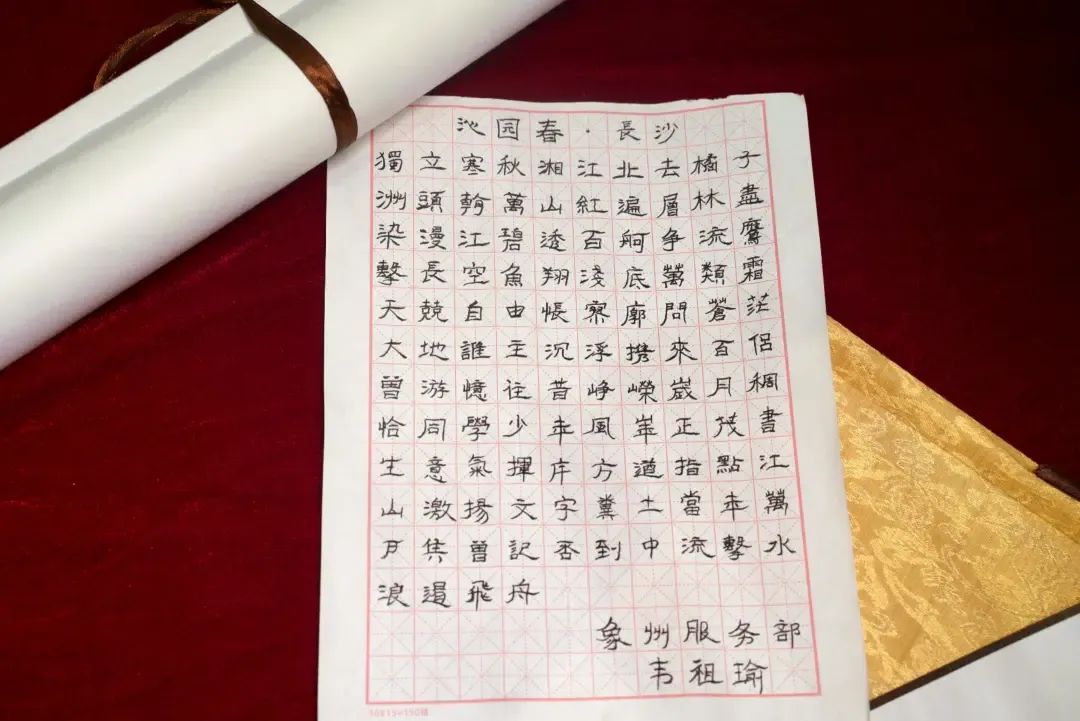 沁园春·長沙
獨立寒秋湘江北去橘子
洲頭看萬山紅遍層林盡
染漫江碧透百舸争流鷹
擊長空魚翔淺底萬類霜
天競自由悵寥廓問蒼茫
大地誰主沉浮携來百侶
曾游憶往昔峥嶸崴月稠
恰同學少年風華正茂書
生意氣揮斥方遒指點江
山激揚文字糞土當年萬
戶侯曾記否到中流擊水
浪遏飛舟
象州服务部
韦祖瑜
10X15=150格